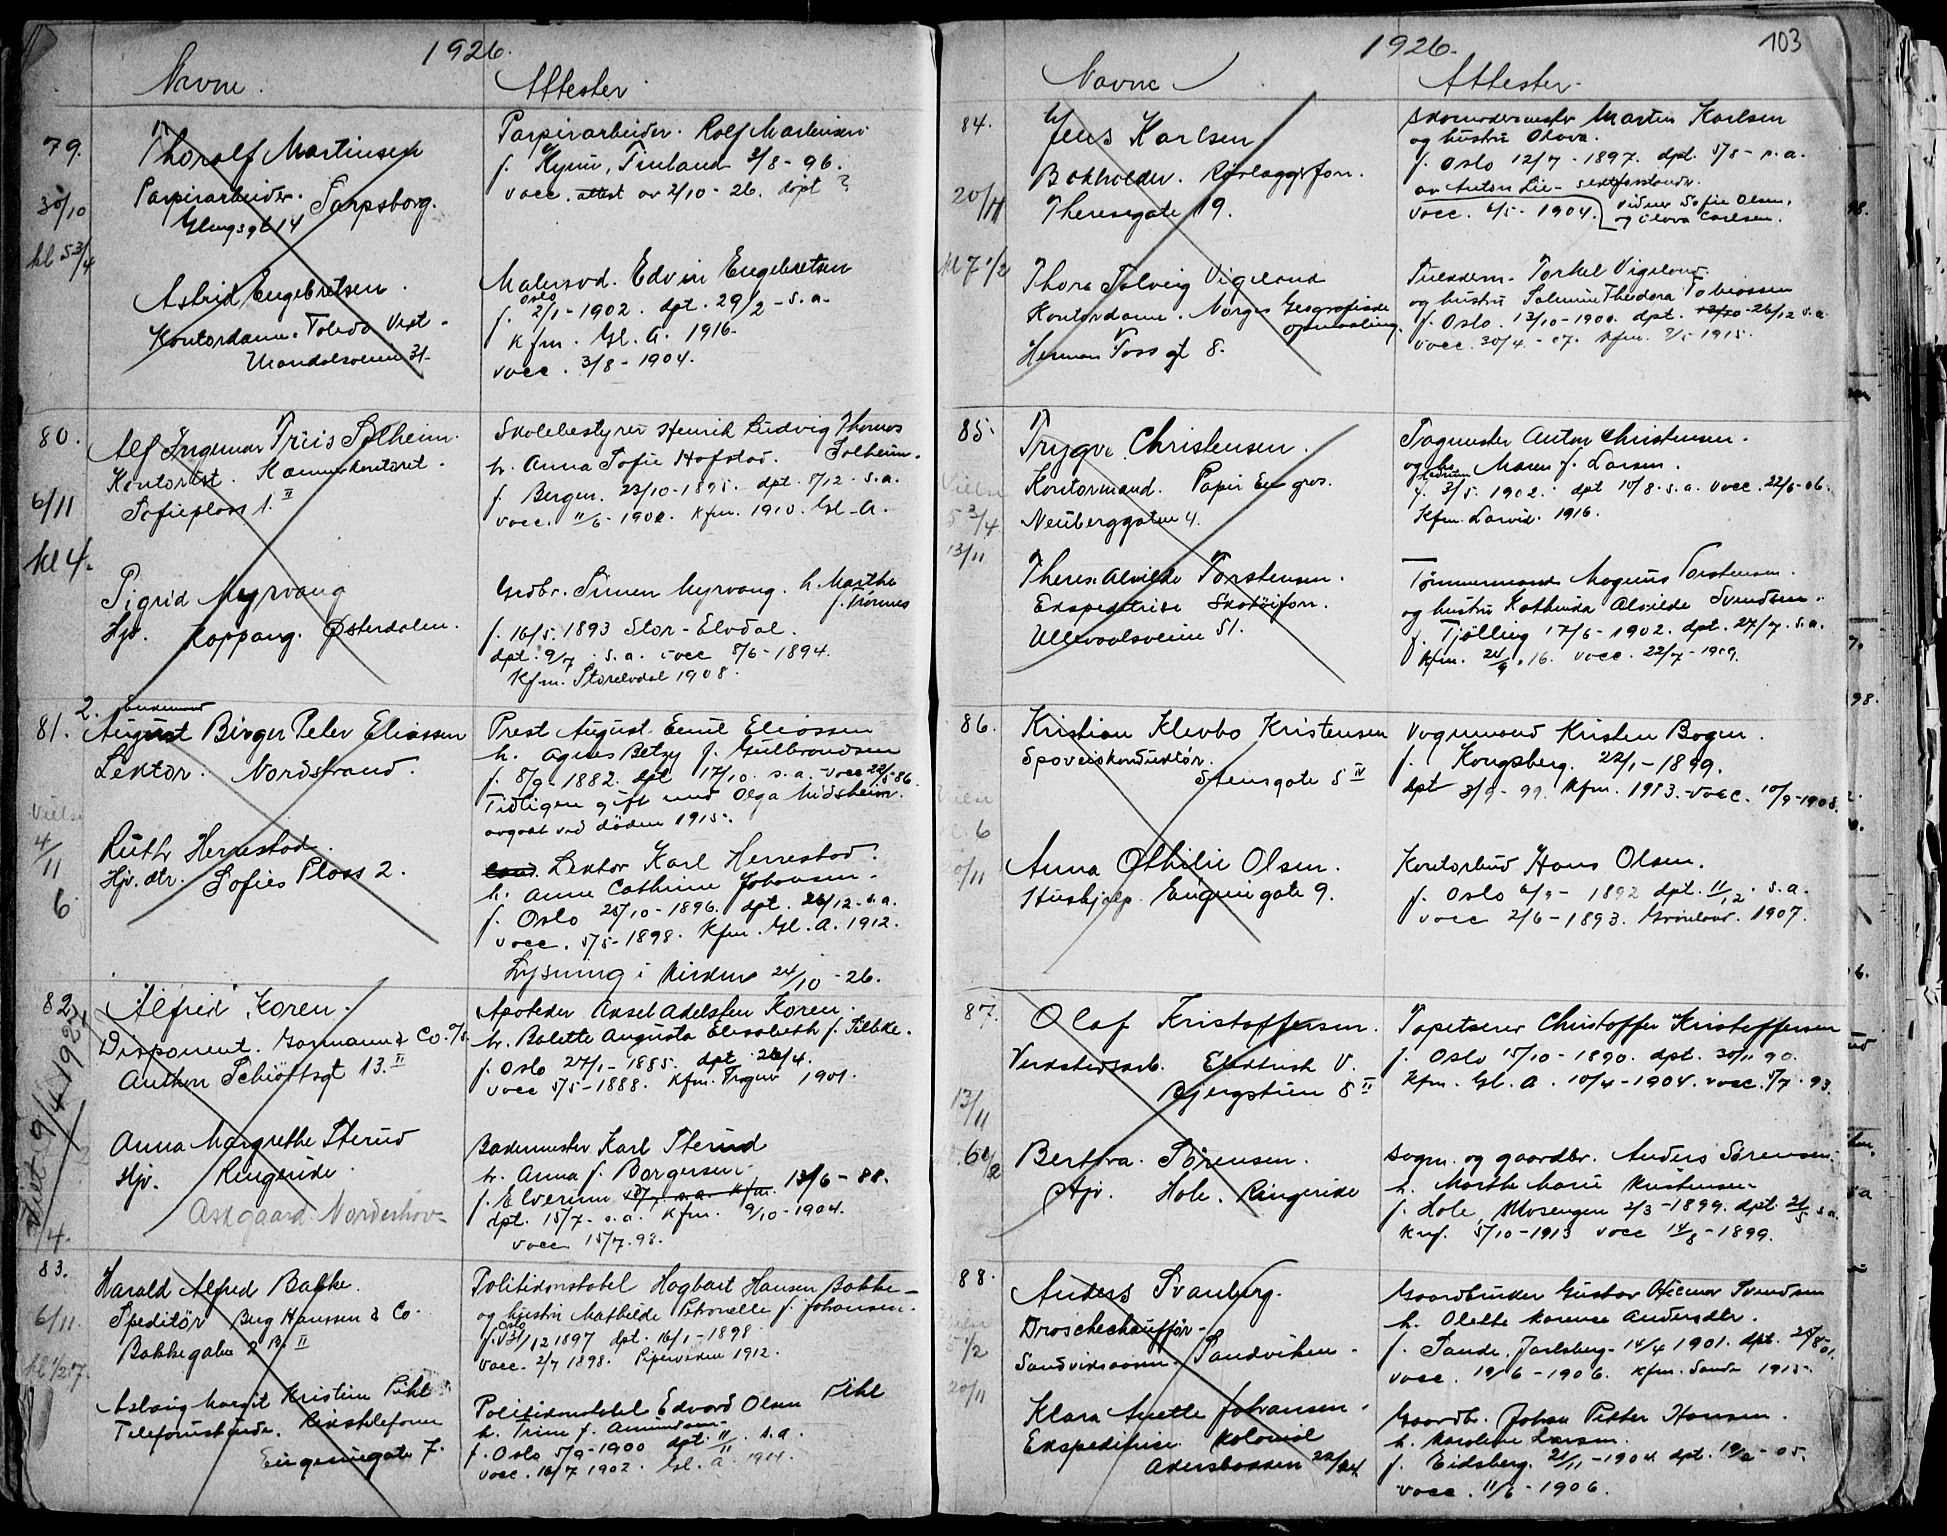 1926.
Navne. Attester
79. Thoralf Martinsen
Papirarbeider. Sarpsborg.
Glengsgt 14
30/10
kl 5 3/4
Papirarbeider. Rolf Martinsen.
f. Kymi, Finland 3/8-96.
vacc. attest av 2/10-26. døpt ?
Astrid Engebretsen.
Kontordame. Toldbo Vest.
Maridalsveien 31.
Malersvd. Edvin Engebretsen
f. Oslo 2/1-1902. dpt. 29/2-s.a.
kfm. Gl. A. 1916.
vacc. 3/8-1904.
80. Alf Ingemar Friis Solheim.
Kontorist. Kæmnerkontoret.
Sofieplass 1. II
6/11
kl 4.
Skolebestyrer Henrik Ludvig Thomas Solheim.
h. Anna Sofie Hofstad.
f. Bergen. 23/10-1895. dpt. 8/12. s.a.
vacc. 11/6-1900. Kfm. 1910. Gl. A.
Sigrid Myrvang
Hjv. Koppang. Østerdalen.
Grdbr. Simen Myrvang. h. Marthe
f. Trønnes
f. 16/5. 1893 Stor-Elvdal.
dpt. 9/7. s.a. vacc 8/6-1894.
Kfm. Storelvdal 1908.
81. 2. August Birger Peter Eliassen
Lektor. Nordstrand.
Vielse
4/11
6
Prest August Emil Eliassen
h. Agnes Betzy f. Gulbrandsen
f. 8/9-1882. dpt 17/10. s.a. vacc 22/5 86
Tidligere gift med Olga Midsheim.
avgaat ved døden 1915.
Ruth Herrestad.
Hjv. dtr. Sofies Plass 2.
Lektor Karl Herrestad.
h. Anne Cathrine Johansen.
f. Oslo 25/10-1896. dpt. 26/12. s.a.
vacc. 5/5-1898. Kfm. Gl. A. 1912.
Lysning i Kirken 24/10-26.
82. Alfred Koren.
Disponent. Gormann & Co. A/S
Anton Schiøttsgt 13. II
Viet 9/4 1927
Apoteker Axsel Adelsten Koren.
h. Bolette Augusta Elisabeth f. Fileke.
f. Oslo 27/1-1885. dpt 26/4.
vacc 5/5-1888. Kfm. Frogner 1901.
Anna Margrethe Sterud
Hjv. Ringerike.
Askgaard. Norderhov
Bademester Karl Sterud
h. Anna f. Borgersen.
f. Elverum 13/6-88.
dpt. 15/7-s.a. Kfm. 9/10-1904.
vacc 15/7.93.
83. Harald Alfred Bakke.
Speditør Berg Hansen & Co
Bakkegata 2 B. II
6/11.
kl 1/2 7.
Politikonstabel Hagbart Hansen Bakke
og hustru Mathilde Petronelle f. Johansen.
f. Oslo 31/12 1897 dpt. 16/1-1898
vacc. 2/7 1898. Pipervikn 1912.
Aslaug Margit Kristine Pihl
Telefonistinde. Rikstelefonen
Eugeniegate 7.
Politikonstabel Edvard Olsen Pihl
h. Trine f. Amundsen.
f. Oslo 5/9-1900 dpt. 11/11. s.a.
vacc. 16/7 1902. Gl. A. 1914.
1926. 103
Navne Attester.
84. Jens Karlsen
Bokholder. Rørleggerforr.
Theresegate 19.
20/11
kl 7 1/2
Skomakermester Martin Karlsen
og hustru Olava.
f. Oslo 12/7-1897. dpt. 5/8-s.a.
av Anton Lie-
vacc. 6/5-1904. Vidner Sofie Olsen,
og Olava Carlsen.
Thora Solveig Vigeland
Kontordame. Norges Geografiske
opmaaling.
Herman Foss gt 8.
Torkel Vigeland.
og hustru Theodora Tobiassen
f. Oslo. 13/10-1900. dpt. 26/12 s.a.
vacc. 30/4.-07. Kfm. 1915.
85. Trygve Christensen.
Kontormand. Papir En gros.
Neuberggaten 4.
Vielse
5 3/4
13/11
Fagmester Anton Christensen.
og h. Maren f. Larsen.
f. 3/5. 1902. dpt 10/8.s.a. vacc. 22/6-06.
Kfm. Larvik. 1916.
Therese Alvilde Torstensen.
Ekspeditrise Skotøiforr.
Ullevaalsveien 51.
Tømmermand Magnus Torstensen.
og hustru Kathinka Alvilde Svendsen.
f. Tjølling 17/6-1902. dpt. 27/7. s.a.
Kfm. 24/9.16. vacc. 22/7-1909.
86. Kristian Klevbo Kristensen
Sporveiskonduktør.
Stensgate 5 IV
6
Vognmand Kristen Bogen.
f. Kongsberg. 22/1-1899.
dpt 3/9-99. Kfm. 1913. vacc. 10/9-1908.
Anna Othilie Olsen.
Hushjelp. Eugeniegate 9.
Kontorbud Hans Olsen.
f. Oslo 6/9-1892 dpt. 11/12. s.a.
vacc 2/6-1893. Grønland. 1907.
87. Olaf Kristoffersen.
Verkstedsarb. Elektrisk V.
Bjergstien 8 II
13/11
6 1/2
Tapetserer Christoffer Kristoffersen
f. Oslo 15/10-1890. dpt. 30/11 90.
Kfm. Gl. A. 10/4-1904. vacc. 5/7.93.
Berthra. Sørensen.
Hjv. Hole. Ringerike
Sagm. og gaardbr. Anders Sørensen.
h. Marthe Marie Kristensen.
f. Hole, Mosengen 2/3-1899. dpt. 21/5 s.a.
Knf. 5/10-1913 vacc 14/8-1899.
88. Anders Svanberg.
Droschechauffør.
Sandviksveien. Sandviken.
5 1/2
20/11
Gaardbruker Gustav Hilmer Svendsen
h. Olette Karense Andersdtr.
f. Sande, Jarlsberg. 14/4 1901. dpt. 25/8 01.
vacc. 19/6-1906. Kfm. Sande 1915.
Klara Anette Johansen.
Ekspeditrise Kolonial
Akersbakken 22/24
Gaardbr. Johan Petter Hansen.
h. Karoline Larsen.
f. Eidsberg. 21/11-1904. dpt. 19/2-05.
vacc. 11/6-1906.